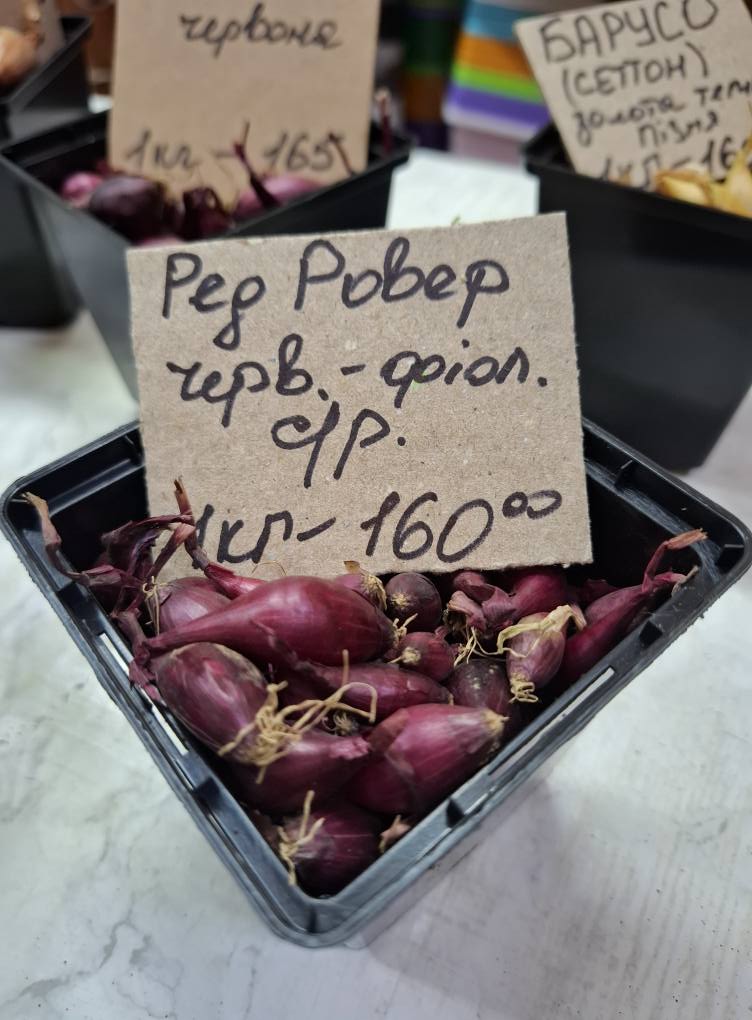 червона
1кг - 165
БАРУСО
(СЕТТОН)
золота темн
пізня
1кг - 16
Ред Ровер
черв.-фіол.
с/р.
1кг- 160⁰⁰